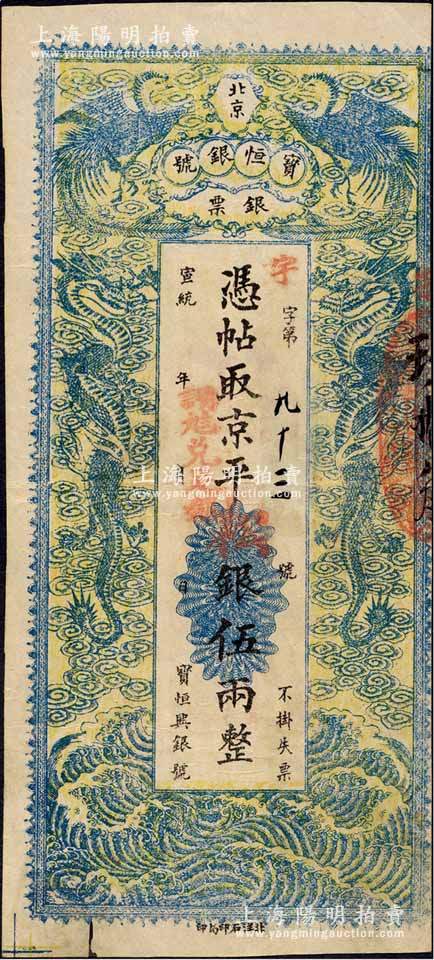 上海陽明拍賣
www.yangmingauction.com
上海陽明拍賣
www.yangmingauction.com
北京
寶恒銀號
銀票
宇
字第九十三號
不掛失票
憑帖取京平
銀伍兩整
宣統
年
月
日
寶恒興銀號
上海陽明拍賣
www.yangmingauction.com
石印局印
上海陽明拍賣
www.yangmingauction.com